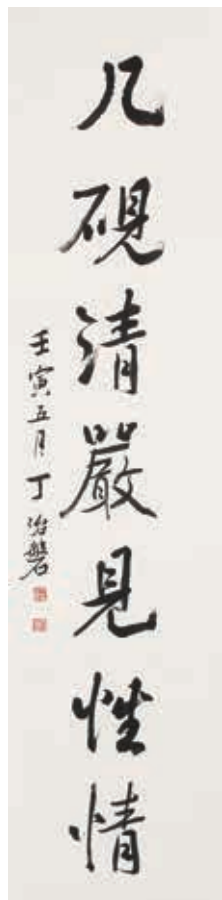 几硯清嚴見性情
壬寅五月丁治磐